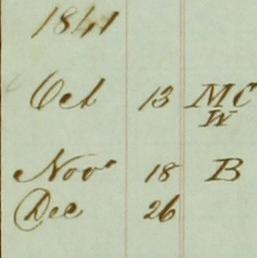 1841
Oct 13 MC
W
Nov 18 B
Dec 26